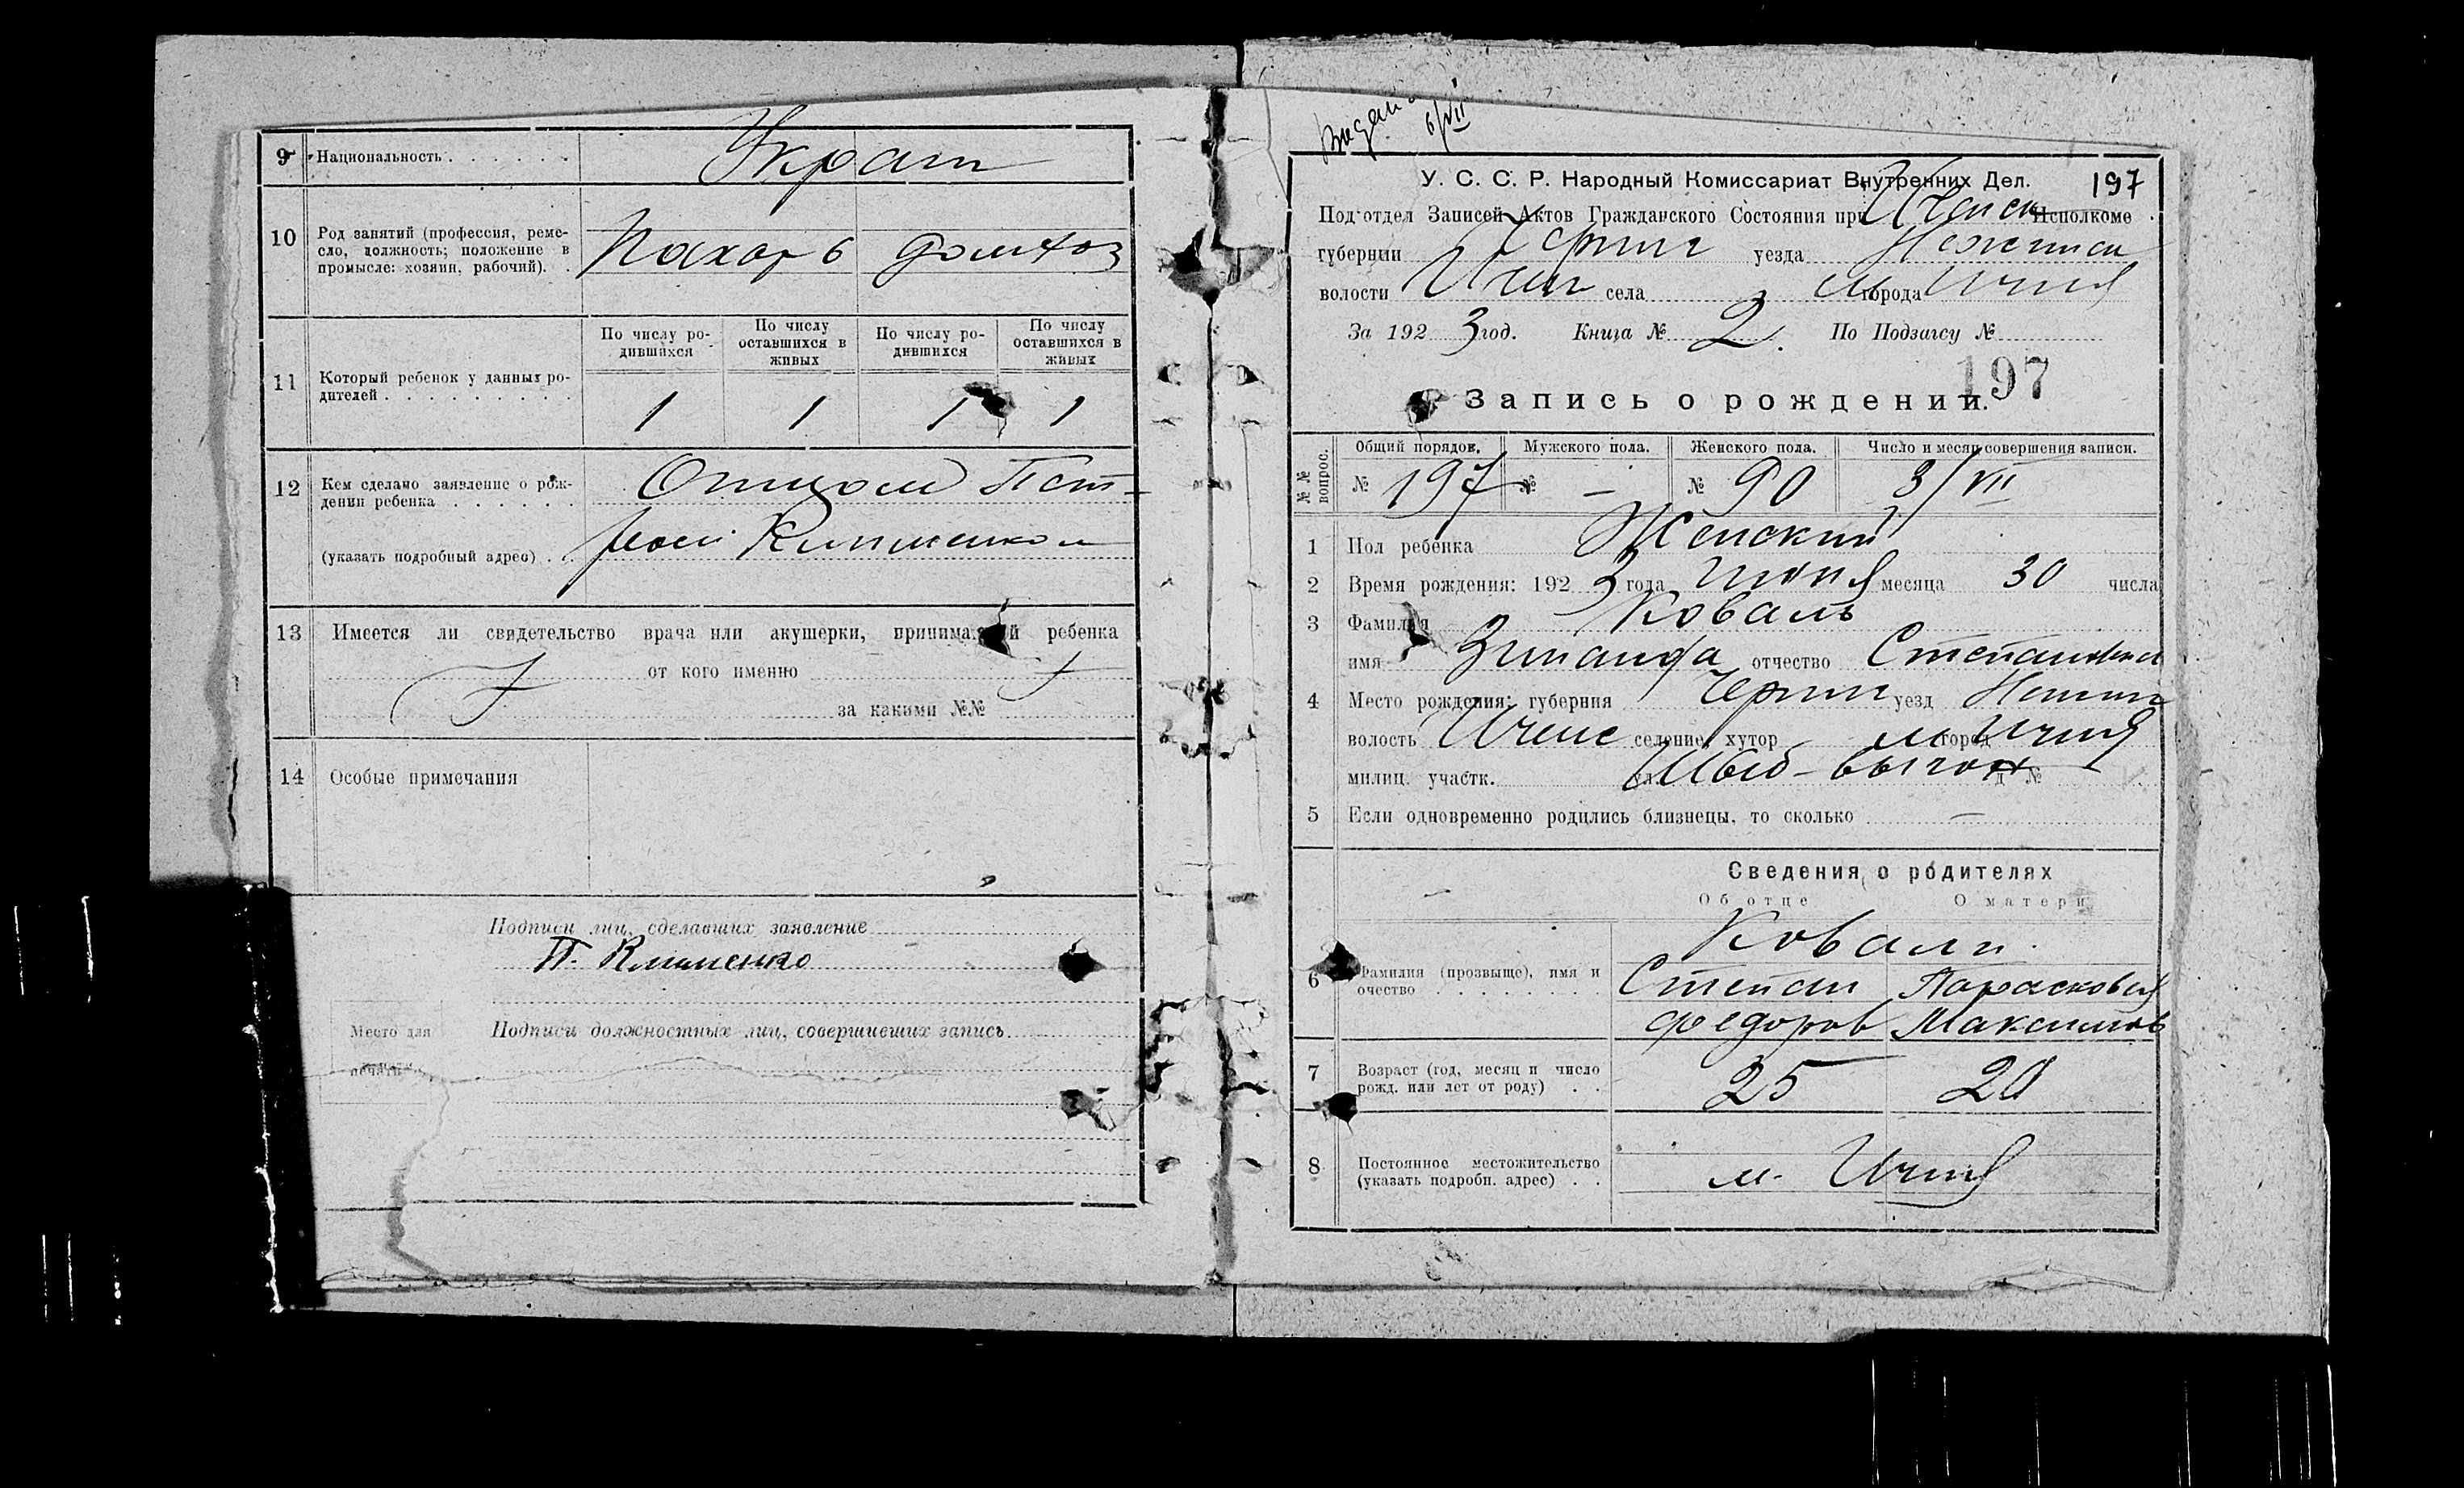 9 Национальность Украин
10 Род занятий (профессия, реме-
сло, должность; положение в
промысле: хозяин, рабочий).
Пахарь домхоз
11 Который ребенок у данных ро-
дителей
По числу ро-
дившихся
По числу
оставшихся в
живых
По числу ро-
дившихся
По числу
оставшихся в
живых
1 1 1 1
12 Кем сделано заявление о рож-
дении ребенка
Отцом
(указать подробный адрес) Клименком
13 Имеется ли свидетельство врача или акушерки, принимавшей ребенка
от кого именно
за какими №№
14 Особые примечания
Подписи лиц, сделавших заявление
П. Клименко
Место для
печати
Подписи должностных лиц, совершивших запись
6/VII
У. С. С. Р. Народный Комиссариат Внутренних Дел. 197
Под'отдел Записей Актов Гражданского Состояния при Ичнск Исполкоме
губернии Черниг уезда Нежинск
волости Ичн села м города Ичня
За 1923 год. Книга № 2. По Подзагсу №
197
Запись о рождении.
№№ вопрос.
Общий порядок. Мужского пола. Женского пола. Число и месяц совершения записи.
№ 197 № — № 90 3/VII
1 Пол ребенка Женский
2 Время рождения: 1923 года Июня месяца 30 числа
3 Фамилия Коваль
имя Зинаида отчество Степановна
4 Место рождения: губерния Черниг уезд Нежин
волость Иченс селение, хутор м город Ичня
милиц. участк. ул. выгон д №
5 Если одновременно родились близнецы, то сколько —
Сведения о родителях
Об отце О матери
6 Фамилия (прозвыще), имя и
очество
Ковали
Степан Парасковья
Федоров Максимов
7 Возраст (год, месяц и число
рожд. или лет от роду)
25 20
8 Постоянное местожительство
(указать подробн. адрес)
м. Ичня